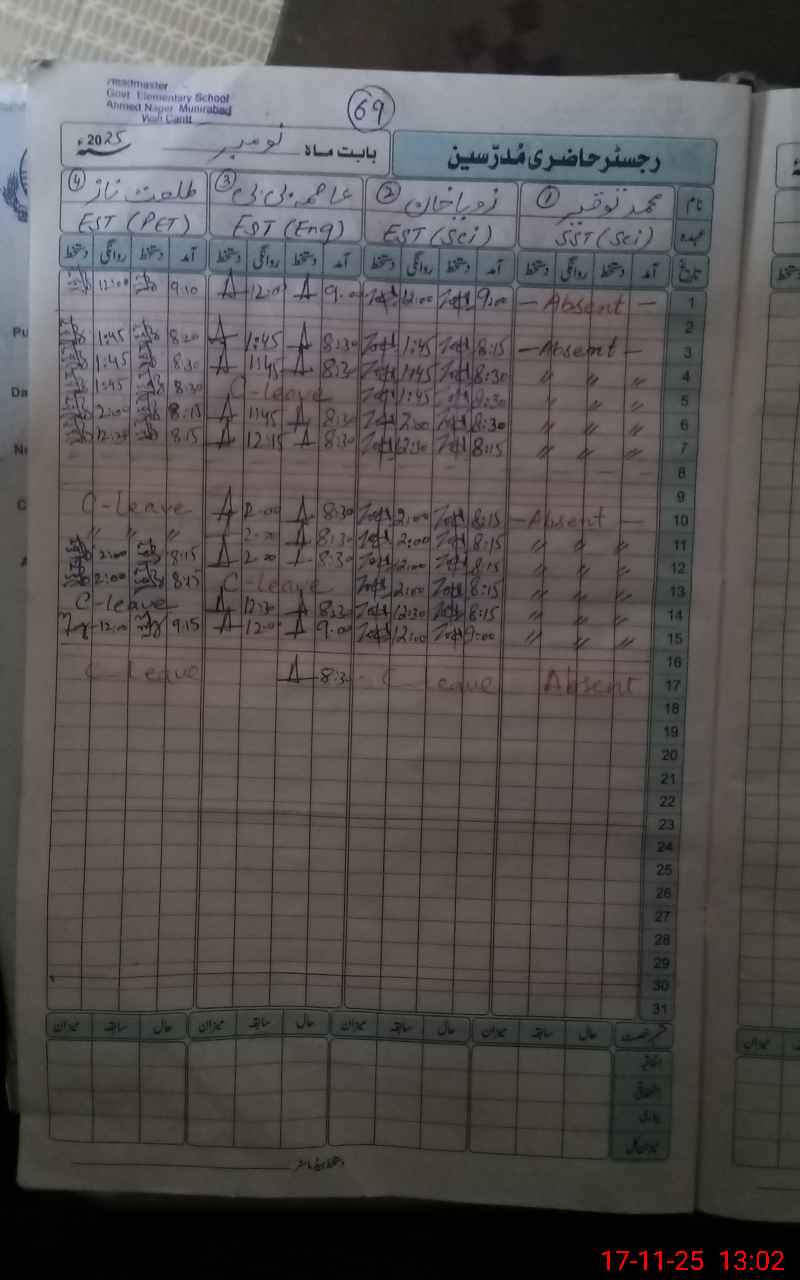 Headmaster
Govt. Elementary School
Ahmed Nager Munirabad
Wah Cantt
69
رجسٹر حاضری مُدرّسین
بابت ماہ نومبر 2025ء
نام ① محمد توقیر ② زوبا خان ③ عاصمہ بی بی ④ طلعت ناز
عہدہ SST (Sci) EST (Sci) EST (Eng) EST (PET)
تاریخ آمد دستخط روانگی دستخط آمد دستخط روانگی دستخط آمد دستخط روانگی دستخط آمد دستخط روانگی دستخط
1 — Absent — 9:00 12:00 A 9:00 A 12:00 9:10 12:00
2
3 — Absent — 8:15 1:45 8:30 A 1:45 A 8:20 1:45
4 〃 〃 〃 8:30 1:45 8:30 A 1:45 A 8:30 1:45
5 〃 〃 〃 8:30 1:45 C-leave 8:30 1:45
6 〃 〃 〃 8:30 2:00 8:30 A 1:45 A 8:15 2:00
7 〃 〃 〃 8:15 12:30 8:30 A 12:15 A 8:15
8
9
10 — Absent — 8:15 2:00 8:30 A 2:00 A C-leave
11 〃 〃 〃 8:15 2:00 8:30 A 2:00 A 〃 〃 〃
12 〃 〃 〃 8:15 2:00 8:30 A 2:00 A 8:15 2:00
13 〃 〃 〃 8:15 2:00 C-leave 8:15 2:00
14 〃 〃 〃 8:15 12:30 A 12:30 A C-leave
15 〃 〃 〃 9:00 12:00 9:00 A 12:00 A 9:15 12:00
16
17 Absent C leave 8:30 A C Leave
18
19
20
21
22
23
24
25
26
27
28
29
30
31
قسم رخصت حال سابقہ میزان حال سابقہ میزان حال سابقہ میزان حال سابقہ میزان
اتفاقیہ
بیماری
میزان کل
دستخط ہیڈ ماسٹر
17-11-25 13:02